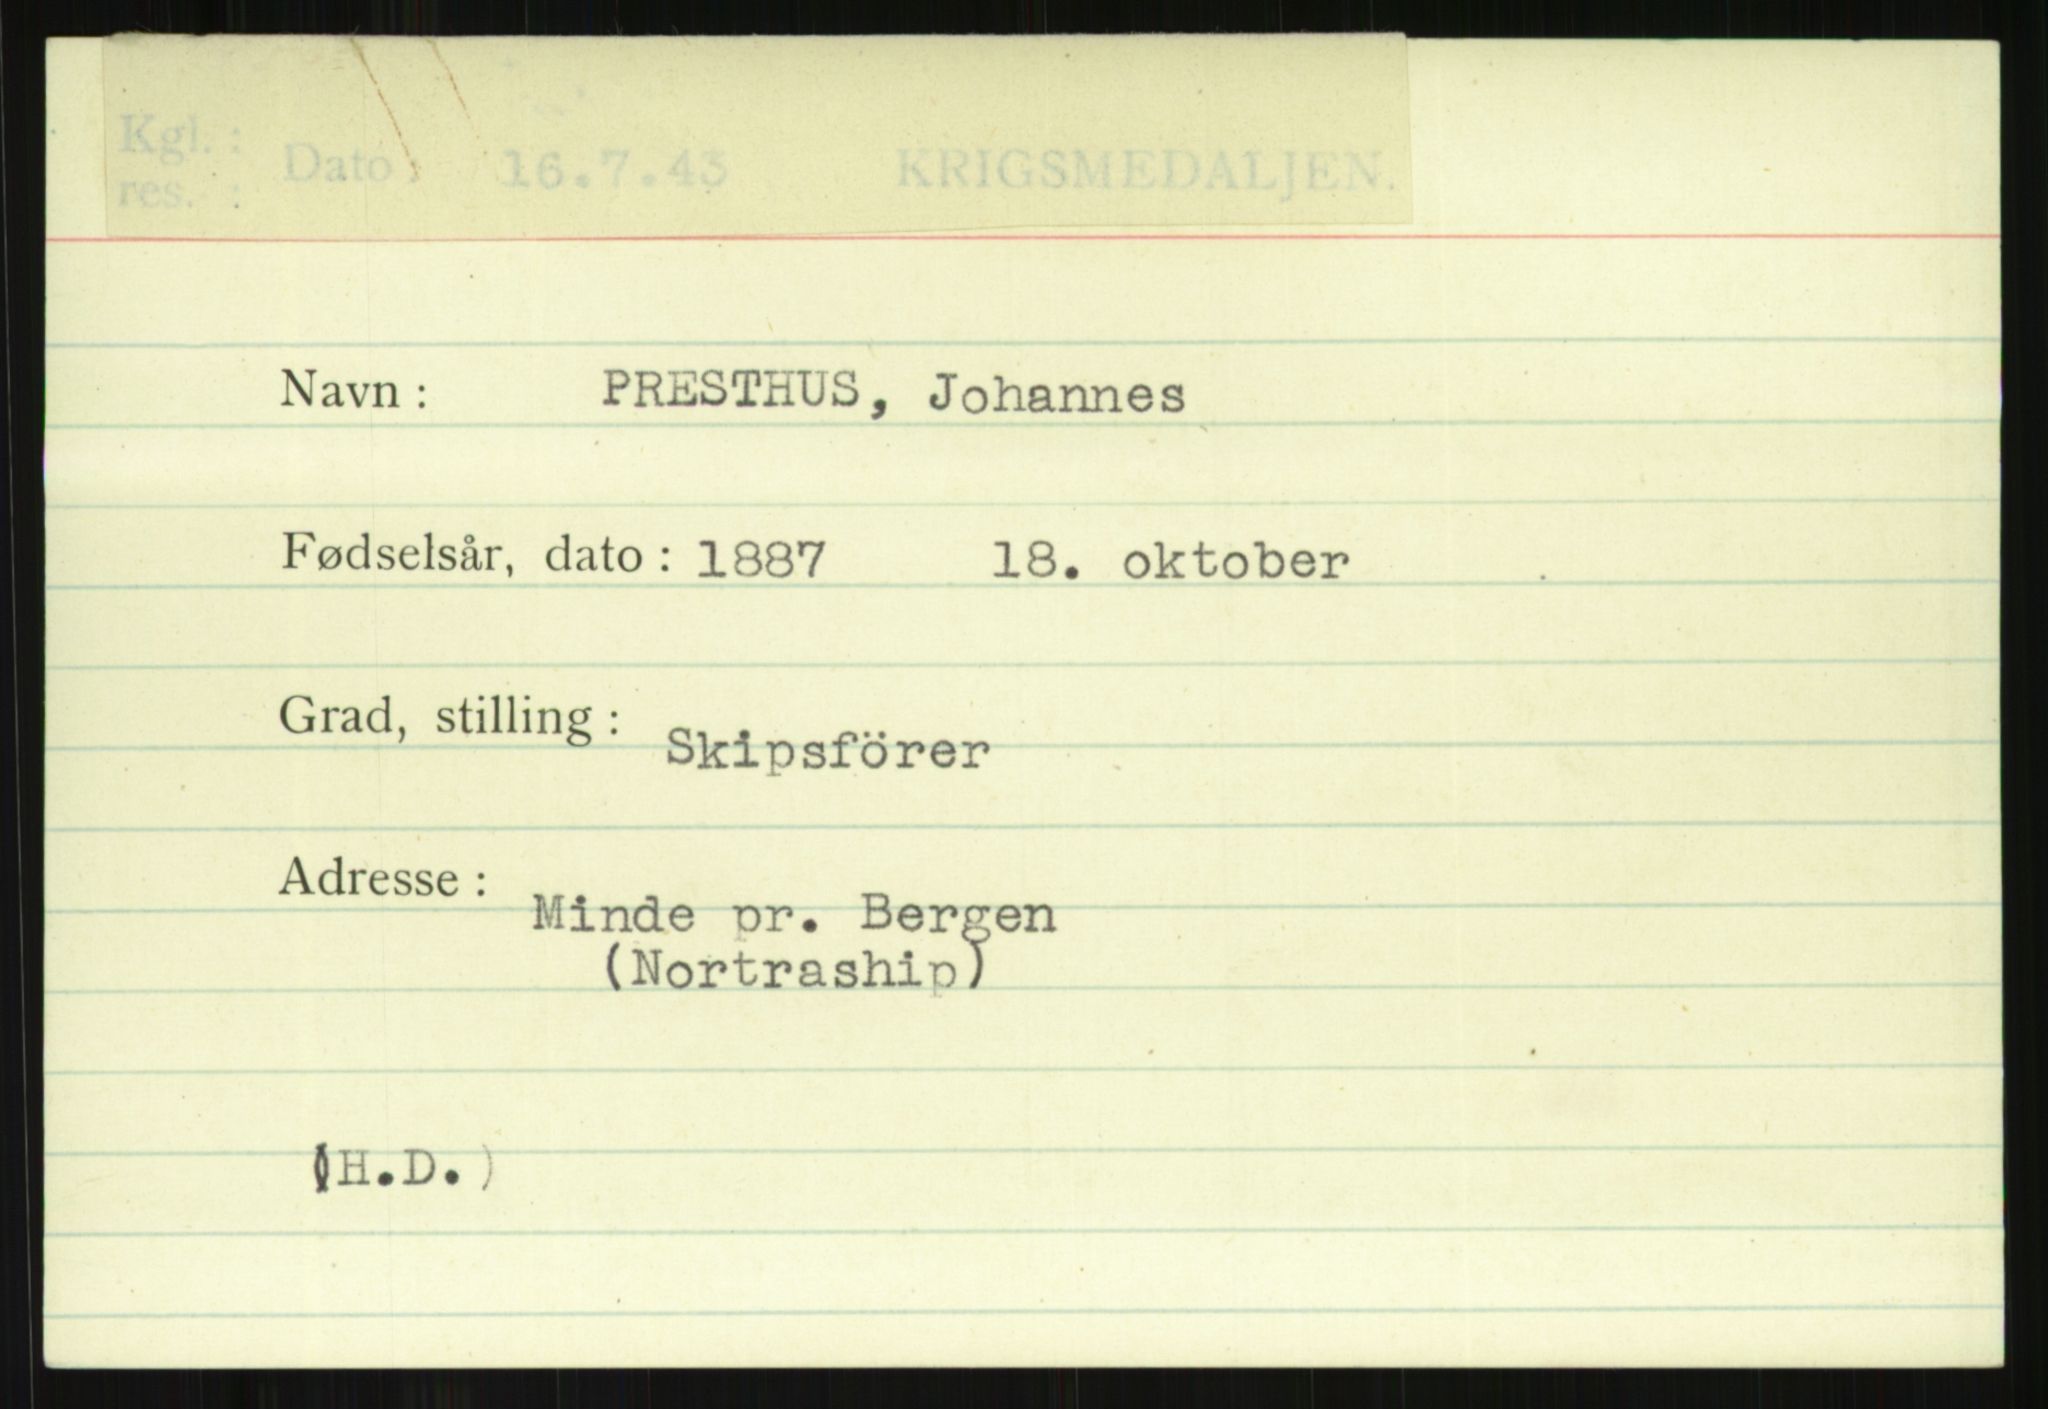 Kgl. :
res. :
Dato : 16.7.43 KRIGSMEDALJEN.
Navn : PRESTHUS, Johannes
Fødselsår, dato : 1887 18. oktober
Grad, stilling : Skipsförer
Adresse : Minde pr. Bergen
(Nortraship)
(H.D.)